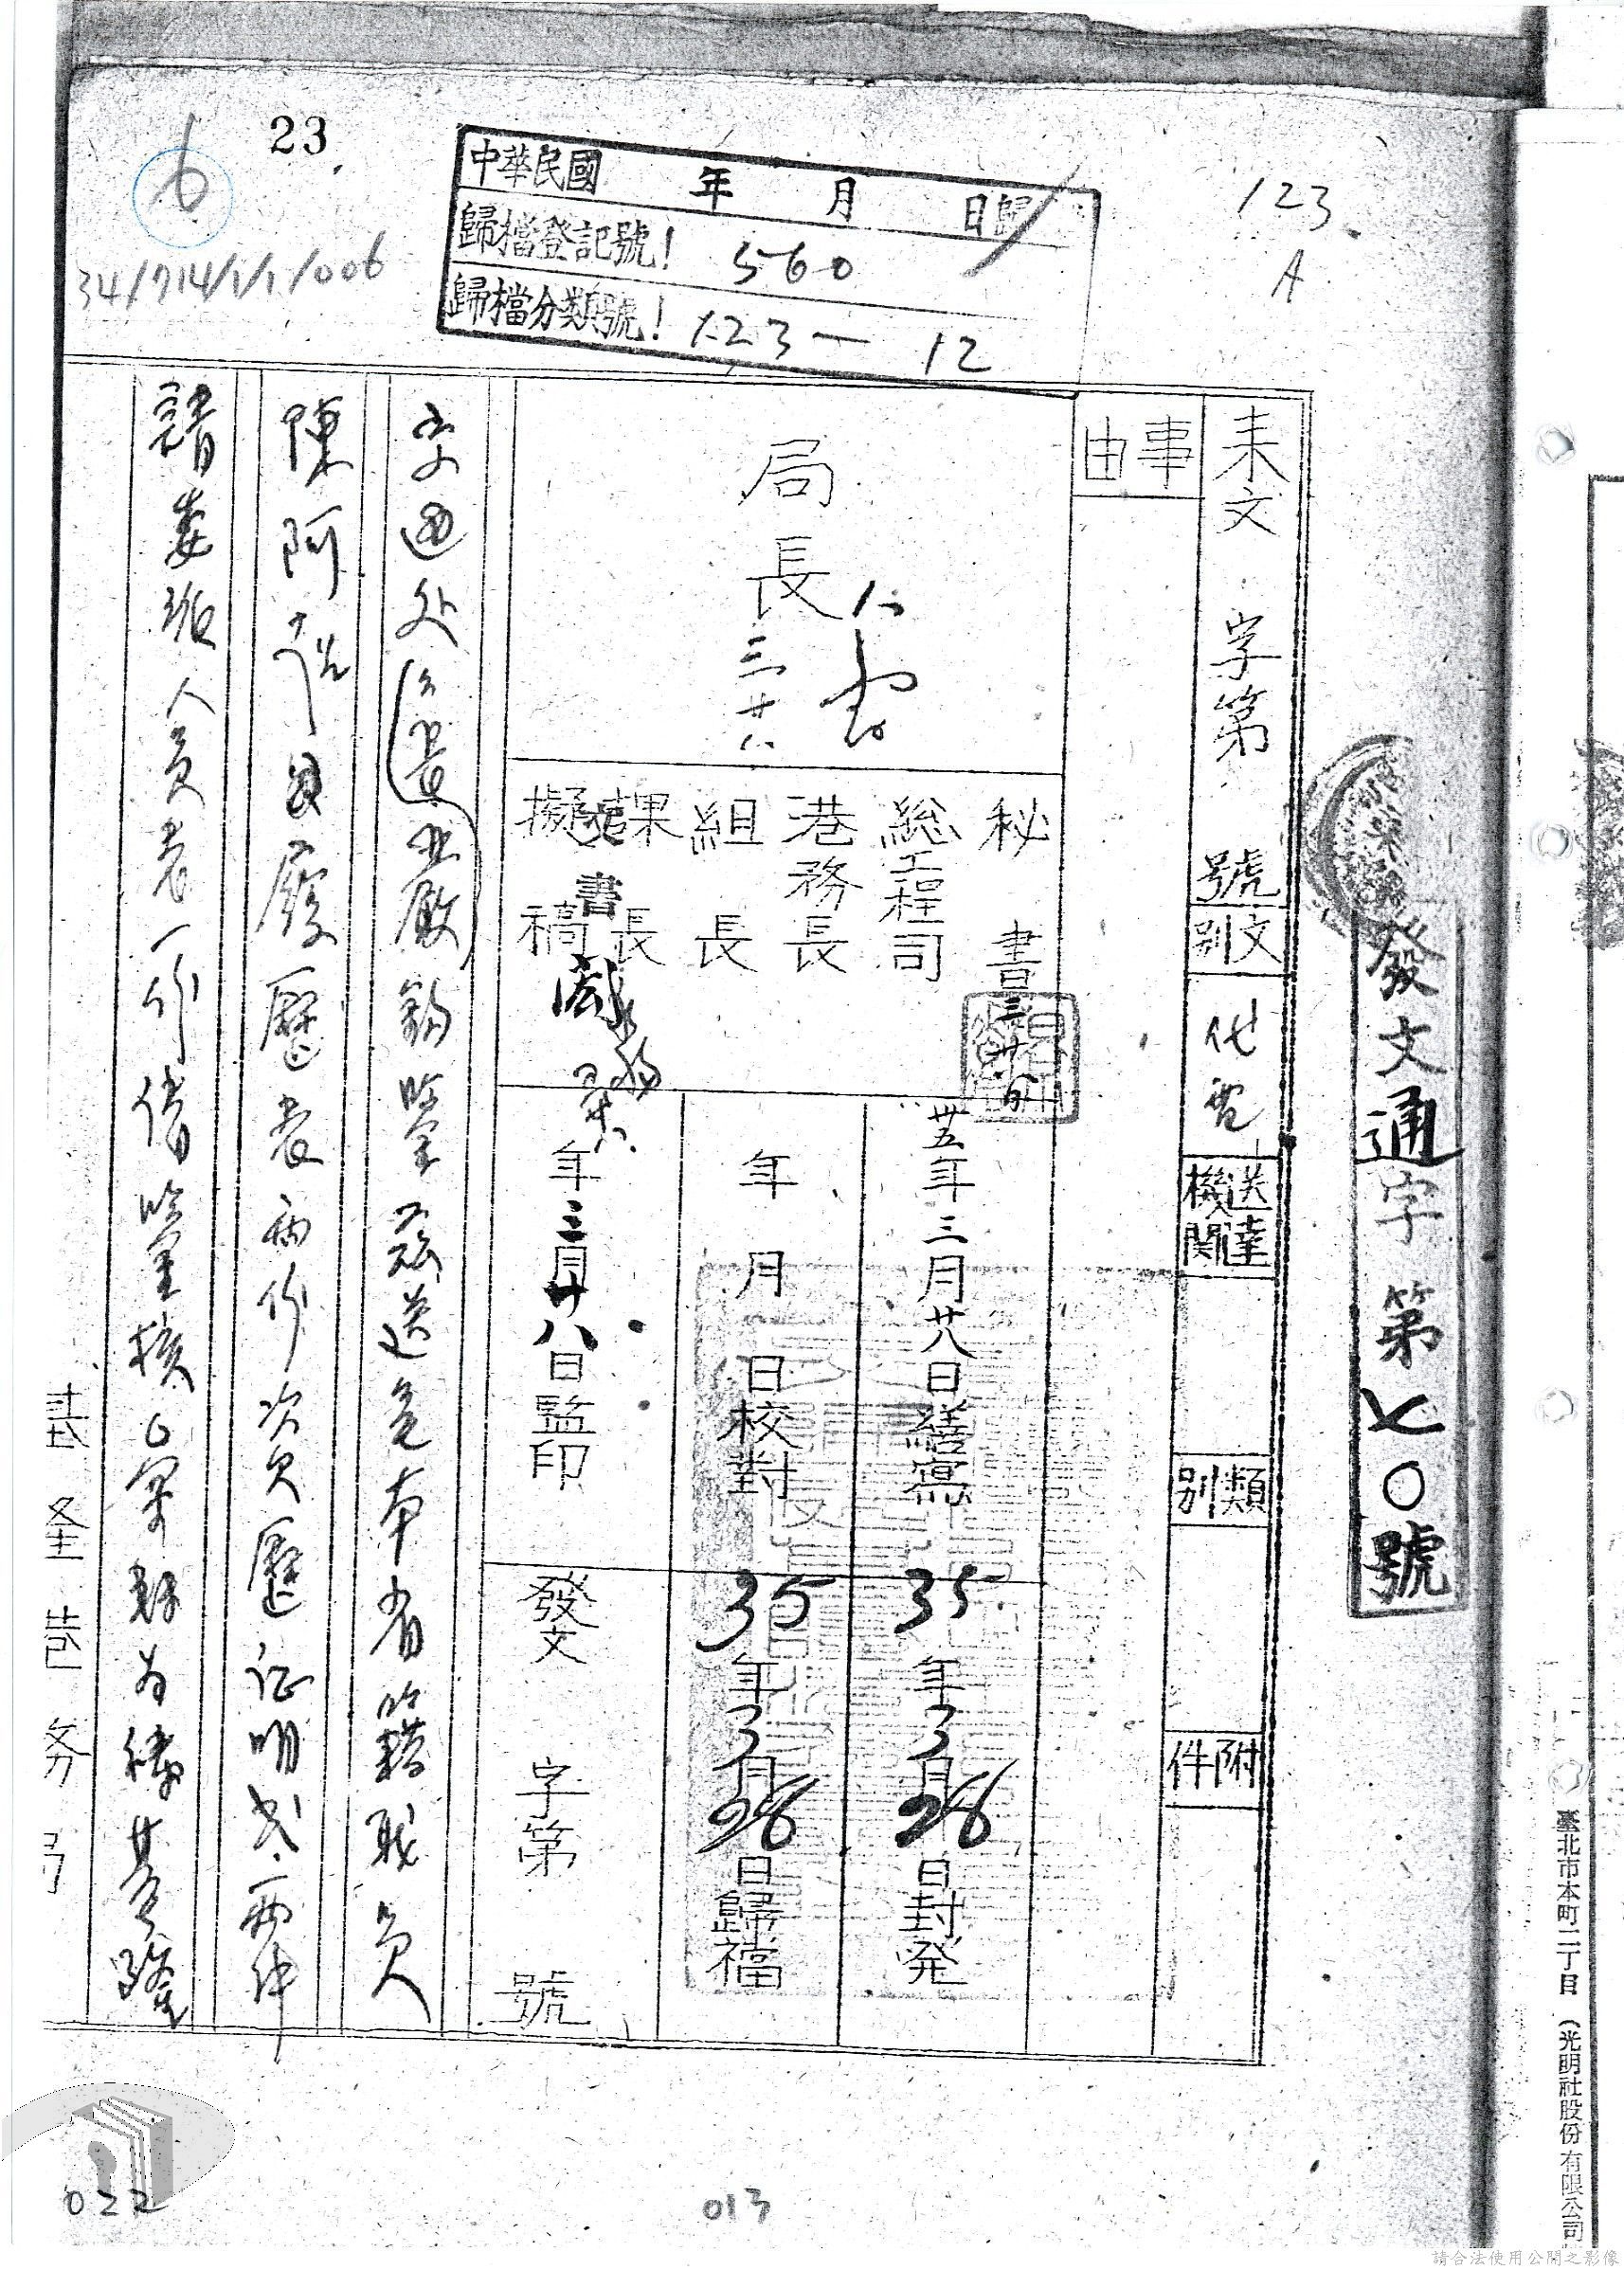 23
6
34/714/1/1/006
中華民國 年 月 日歸
歸檔登記號! 560
歸檔分類號! 123—12
123
A
發文通字第七〇號
来文 字第 號
文別 代電
送達機関
類別
附件
事由
局長
三 廿八
秘書
総工程司
港務長
組長
課長
文書
擬稿
卅五年三月廿八日繕寫
年 月 日校對
年三月廿八日監印
35年3月28日封発
35年3月28日歸檔
發文 字第 號
交通處 鈞鑒茲送呈本省籍職員
陳阿 履歷表兩份次員歷証明書兩件
請委派人員表一份 鑒核 為禱基隆
基隆港務局
臺北市本町二丁目 (光明社股份有限公司
022
013
請合法使用公開之影像